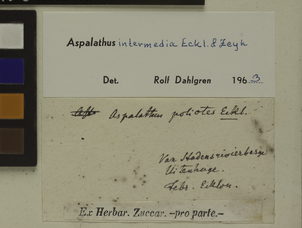 Aspalathus intermedia Eckl. & Zeyh
Det. Rolf Dahlgren 1963
Aspalathus poliotes Eckl.
Van Stadensrivierberge
Uitenhage.
Ecklon.
Ex Herbar. Zuccar. –pro parte.–